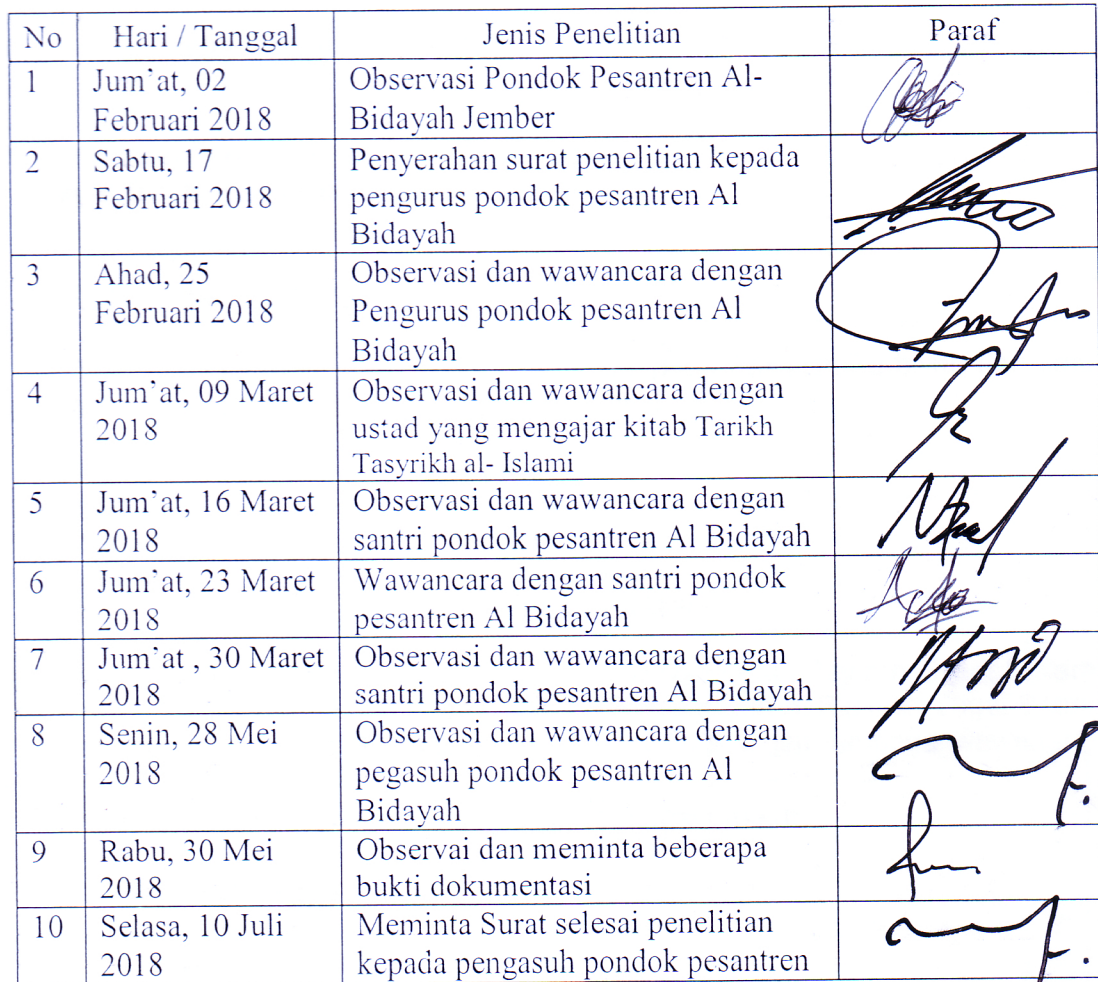 No Hari / Tanggal Jenis Penelitian Paraf
1 Jum'at, 02 Observasi Pondok Pesantren Al-
Februari 2018 Bidayah Jember
2 Sabtu, 17 Penyerahan surat penelitian kepada
Februari 2018 pengurus pondok pesantren Al
Bidayah
3 Ahad, 25 Observasi dan wawancara dengan
Februari 2018 Pengurus pondok pesantren Al
Bidayah
4 Jum'at, 09 Maret Observasi dan wawancara dengan
2018 ustad yang mengajar kitab Tarikh
Tasyrikh al- Islami
5 Jum'at, 16 Maret Observasi dan wawancara dengan
2018 santri pondok pesantren Al Bidayah
6 Jum'at, 23 Maret Wawancara dengan santri pondok
2018 pesantren Al Bidayah
7 Jum'at , 30 Maret Observasi dan wawancara dengan
2018 santri pondok pesantren Al Bidayah
8 Senin, 28 Mei Observasi dan wawancara dengan
2018 pegasuh pondok pesantren Al
Bidayah
9 Rabu, 30 Mei Observai dan meminta beberapa
2018 bukti dokumentasi
10 Selasa, 10 Juli Meminta Surat selesai penelitian
2018 kepada pengasuh pondok pesantren